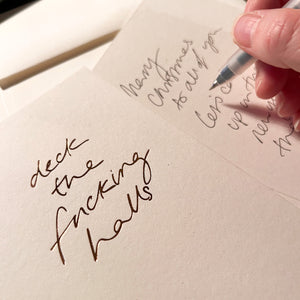 deck
the
fucking
halls
merry
christmas
to all of you
up in the
new
the